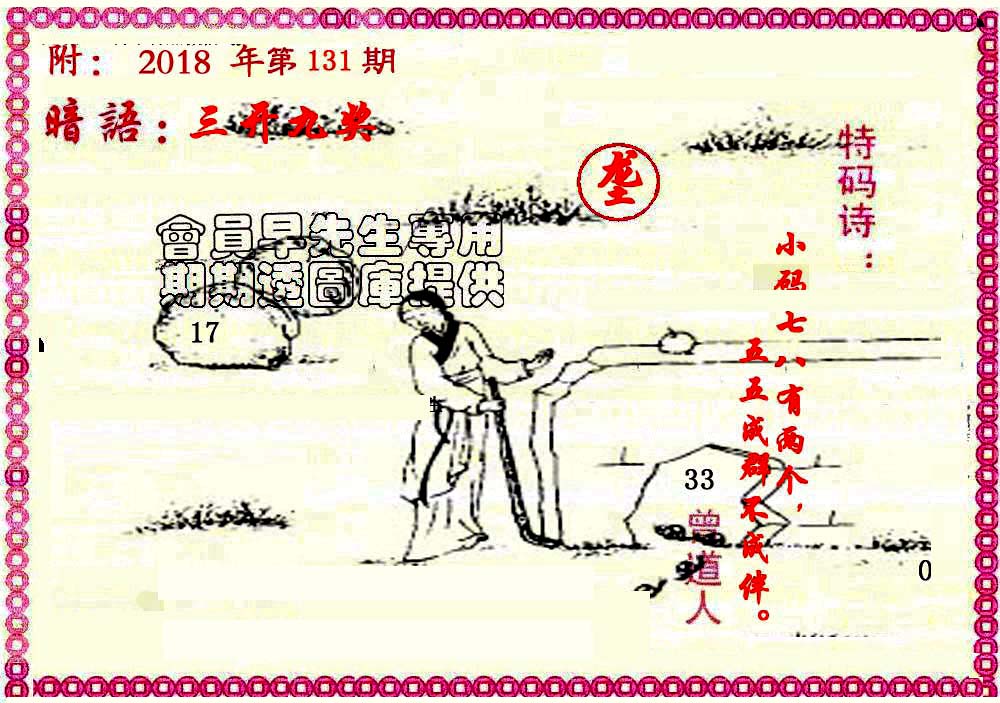 附： 2018 年第 131 期
暗語：三开九奖
垄
特码诗：
小码七八有两个，
五五成群不成伴。
會員早先生專用
期期透圖庫提供
17
33
曾道人
0